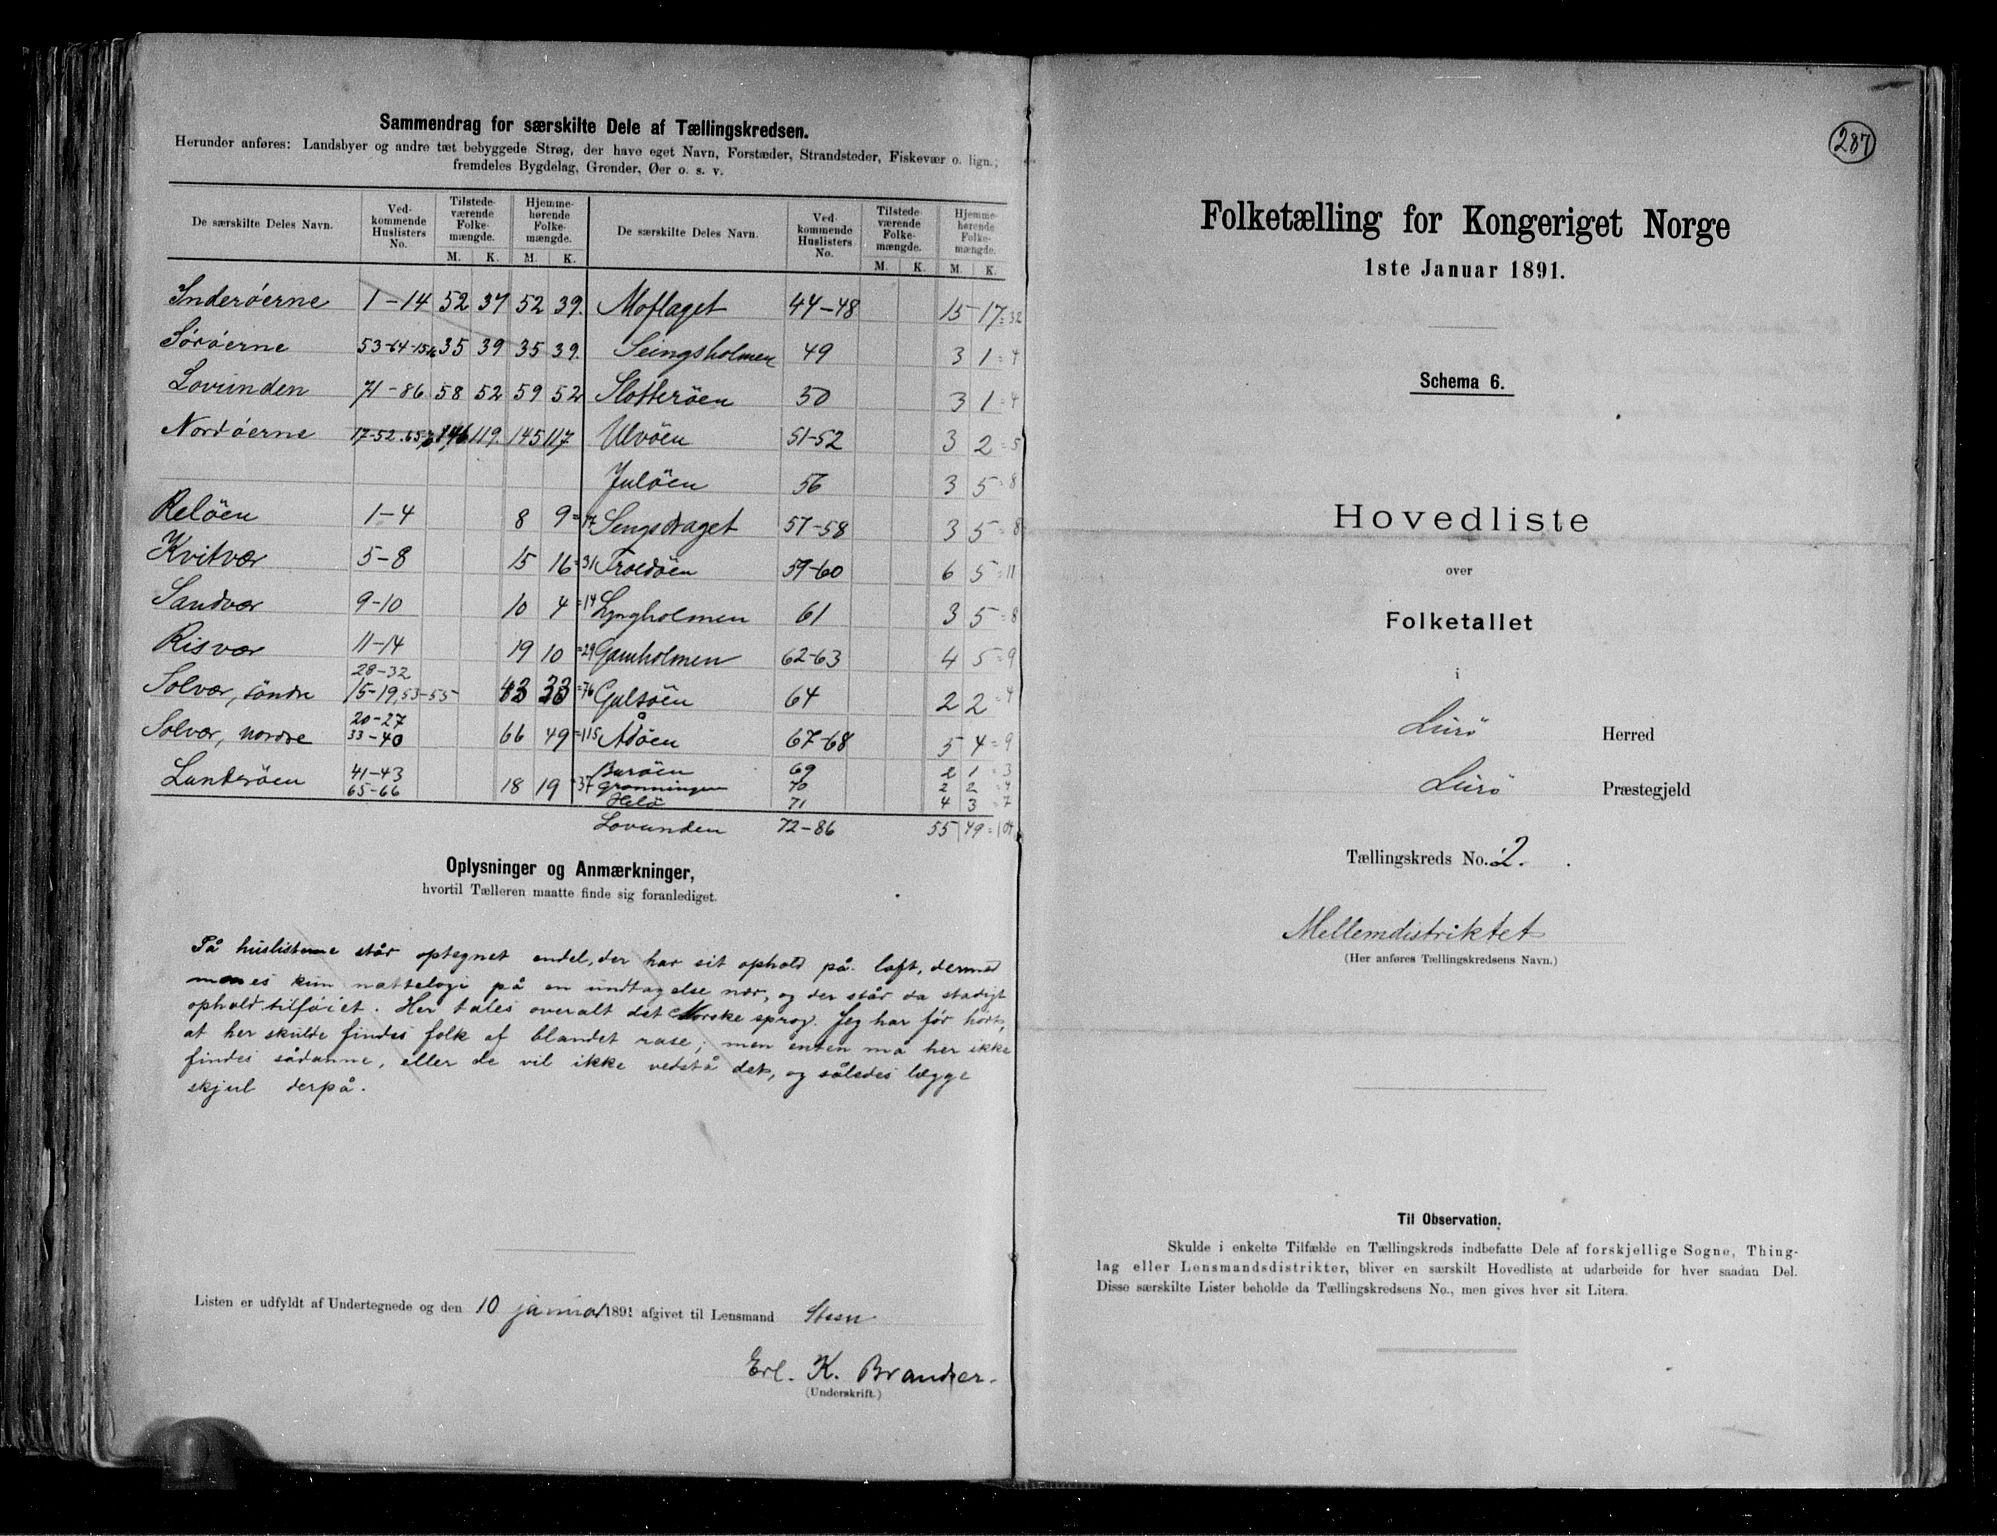 Sammendrag for særskilte Dele af Tællingskredsen.
Herunder anføres: Landsbyer og andre tæt bebyggede Strøg, der have eget Navn, Forstæder, Strandsteder, Fiskevær o. lign.;
fremdeles Bygdelag, Grender, Øer o. s. v.
De særskilte Deles Navn. Ved-kommende Huslisters No. Tilstede-værende Folke-mængde. M. K. Hjemme-hørende Folke-mængde. M. K.
De særskilte Deles Navn. Ved-kommende Huslisters No. Tilstede-værende Folke-mængde. M. K. Hjemme-hørende Folke-mængde. M. K.
Inderøerne 1-14 52 37 52 39. Moflaget 44-48 15 17=32
Sørøerne 53-64 35 39 35 39. Seingsholmen 49 3 1=4
Lovunden 71-86 58 52 59 52 Slotterøen 50 3 1=4
Nordøerne 17-52 146 119. 145 117 Ulvøen 51-52 3 2=5
Juløen 56 3 5=8
Reløen 1-4 8 9=17 Sengsdraget 57-58 3 5=8
Kvitvær 5-8 15 16=31 Troldøen 59-60 6 5=11
Sandvær 9-10 10 4=14 Lyngholmen 61 3 5=8
Risvær 11-14 19 10=29 Gamholmen 62-63 4 5=9
Solvær, søndre 28-32 15-19, 53-55 43 33=76 Galsøen 64 2 2=4
Solvær, nordre 20-27 33-40 66 49=115 Åsøen 67-68 5 4=9
Lunderøen 41-43 65-66 18 19=37 Burøen 69 2 1=3
Grønningen 70 2 2=4
Helø 71 4 3=7
Lovunden 72-86 55 49=104
Oplysninger og Anmærkninger,
hvortil Tælleren maatte finde sig foranlediget.
På huslisterne står optegnet endel, der har sit ophold på loft, dermed
menes kun nattelogi på en undtagelse nær, og der står da stadigt
ophold tilføiet. Her tales overalt det Norske sprog. Jeg har før hørt,
at her skulde findes folk af blandet rase; men enten må her ikke
findes sådanne, eller de vil ikke vedstå det, og således lægge
skjul derpå.
Listen er udfyldt af Undertegnede og den 10 januar 1891 afgivet til Lensmand Steen
Erl. K. Brandser.
(Underskrift.)
287
Folketælling for Kongeriget Norge
1ste Januar 1891.
Schema 6.
Hovedliste
over
Folketallet
i
Lurø Herred
Lurø Præstegjeld
Tællingskreds No. 2.
Mellemdistriktet
(Her anføres Tællingskredsens Navn.)
Til Observation.
Skulde i enkelte Tilfælde en Tællingskreds indbefatte Dele af forskjellige Sogne, Thing-
lag eller Lensmandsdistrikter, bliver en særskilt Hovedliste at udarbeide for hver saadan Del.
Disse særskilte Lister beholde da Tællingskredsens No., men gives hver sit Litera.